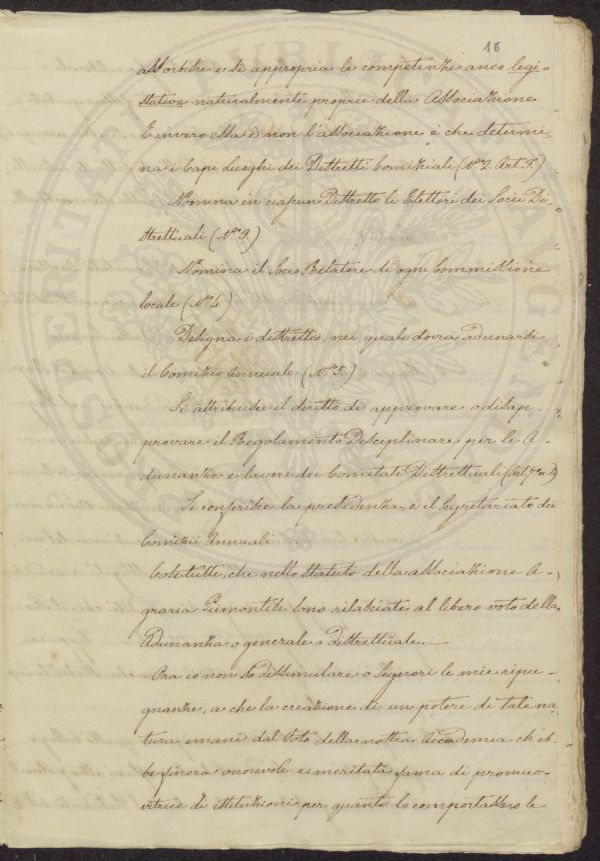 16
assorbisce e si appropria le competenze anco legi-
slative naturalmente proprie della Associazione.
E invero essa e non l'associazione è che determi-
na i Capi Luoghi dei Distretti Comiziali (N° 2. Art. 5.)
Nomina in ciascun Distretto li Elettori dei Socii Di-
strettuali (N° 3.)
Nomina il Socio Relatore di ogni Commissione
locale (N° 4.)
Designa i distretti, nei quali dovrà adunarsi
il Comizio Annuale (N° 5.)
Si attribuisce il diritto di approvare o disap-
provare il Regolamento Disciplinare per le A-
dunanze e lavori dei Comitati Distrettuali (Art. 7
Si conferisce la presidenza, e il Segretariato dei
Comizii Annuali.
Cose tutte, che nello statuto della associazione A-
graria Piemontese sono rilasciate al libero voto della
Adunanza o generale o distrettuale. —
Ora io non so dissimulare o Signori le mie ripu-
gnanze, a che la creazione di un potere di tale na
tura emani dal Voto della nostra Accademia ch'eb-
be finora onorevole e meritata fama di promuo-
vitrice di istituzioni per quanto lo comportassero le